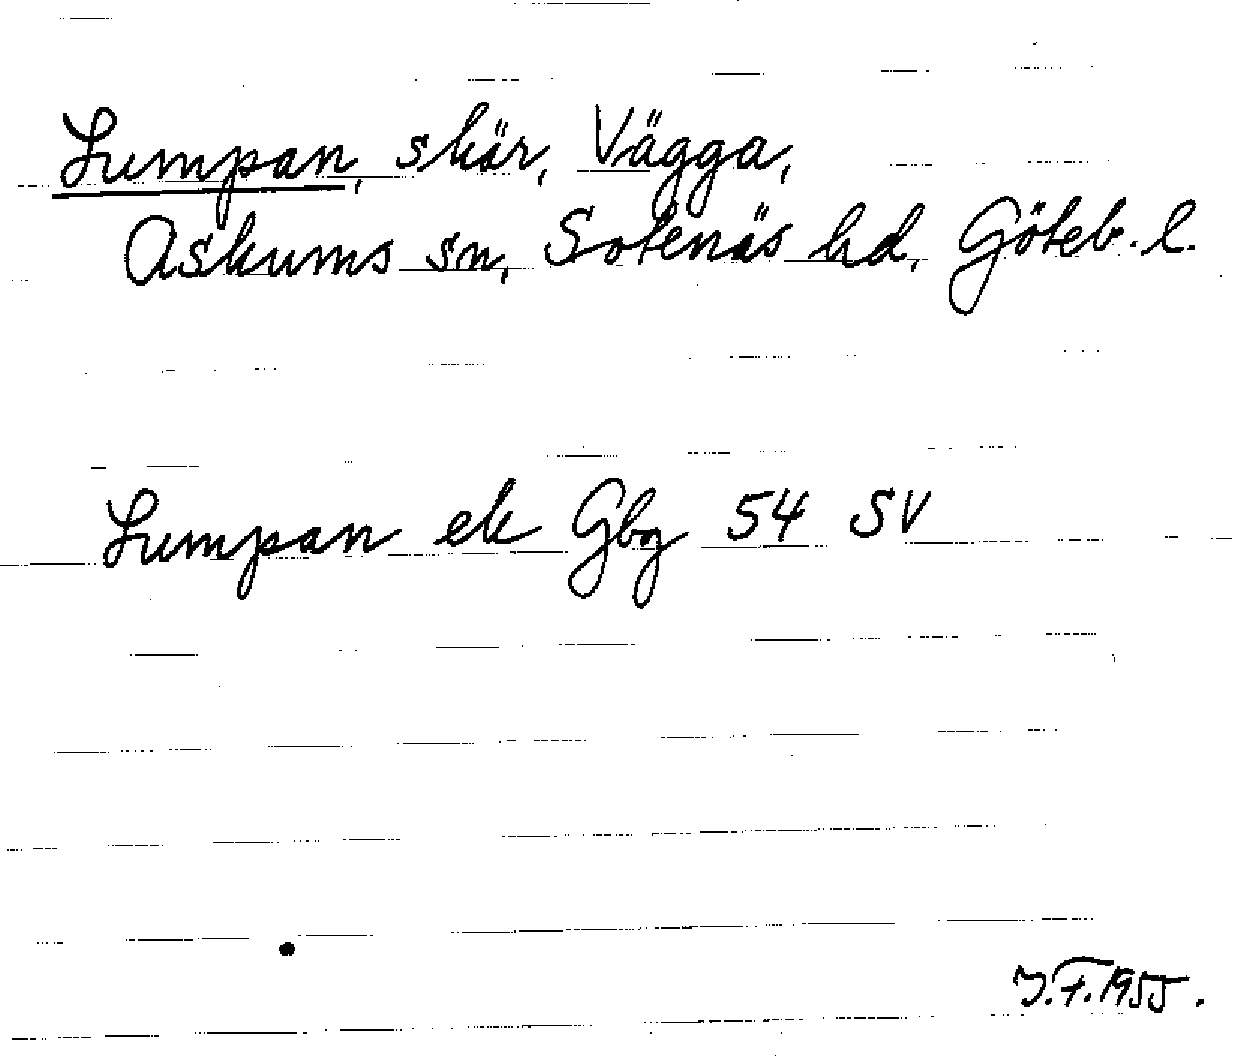 Lumpan, skär, Vägga,
Askums sn, Sotenäs hd, Göteb. l.
Lumpan ek Gbg 54 SV
J.F. 1955.